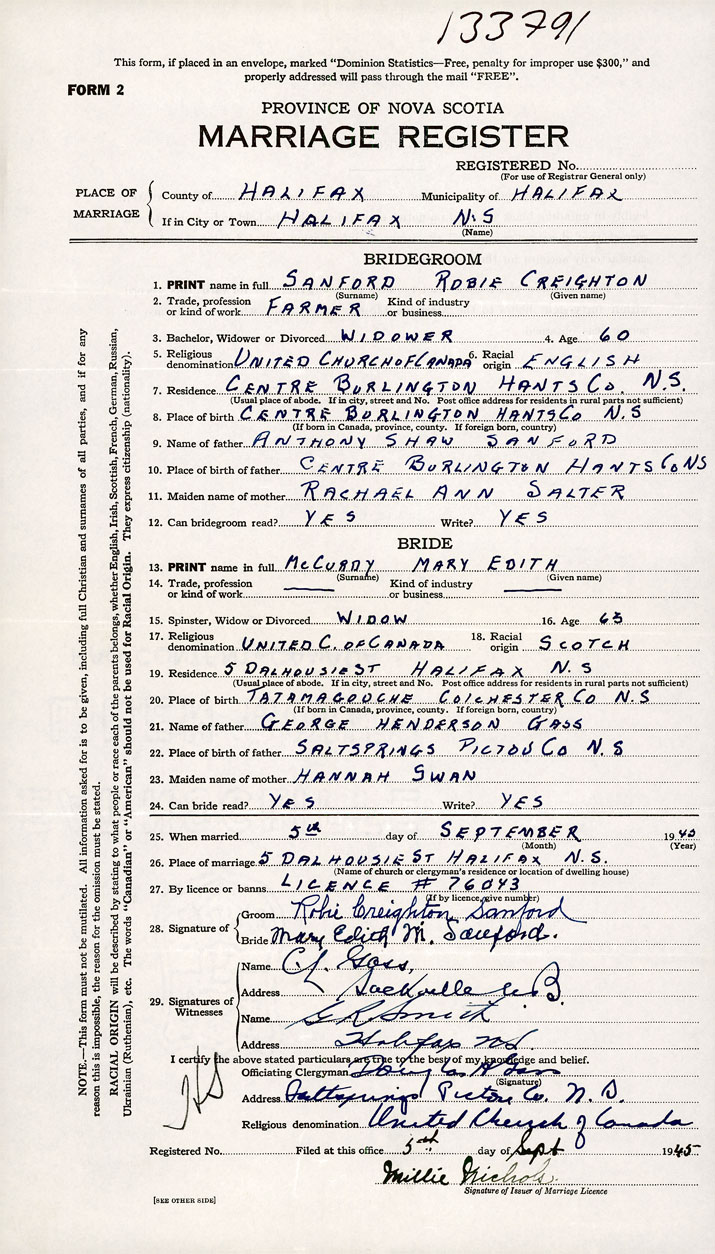 13379
This form, if placed in an envelope, marked "Dominion Statistics—Free, penalty for improper use $300," and
properly addressed will pass through the mail "FREE".
FORM 2
PROVINCE OF NOVA SCOTIA
MARRIAGE REGISTER
REGISTERED No.
(For use of Registrar General only)
PLACE OF MARRIAGE
County of HALIFAX Municipality of HALIFAX
If in City or Town HALIFAX N.S
(Name)
BRIDEGROOM
1. PRINT name in full SANFORD ROBIE CREIGHTON
(Surname) (Given name)
2. Trade, profession or kind of work FARMER Kind of industry or business
3. Bachelor, Widower or Divorced WIDOWER 4. Age 60
5. Religious denomination UNITED CHURCH OF CANADA 6. Racial origin ENGLISH
7. Residence CENTRE BURLINGTON HANTS CO. N.S.
(Usual place of abode. If in city, street and No. Post office address for residents in rural parts not sufficient)
8. Place of birth CENTRE BURLINGTON HANTS CO N S
(If born in Canada, province, county. If foreign born, country)
9. Name of father ANTHONY SHAW SANFORD
10. Place of birth of father CENTRE BURLINGTON HANTS CO NS
11. Maiden name of mother RACHAEL ANN SALTER
12. Can bridegroom read? YES Write? YES
BRIDE
13. PRINT name in full McCURDY MARY EDITH
(Surname) (Given name)
14. Trade, profession or kind of work Kind of industry or business
15. Spinster, Widow or Divorced WIDOW 16. Age 63
17. Religious denomination UNITED C. OF CANADA 18. Racial origin SCOTCH
19. Residence 5 DALHOUSIE ST HALIFAX N.S
(Usual place of abode. If in city, street and No. Post office address for residents in rural parts not sufficient)
20. Place of birth TATAMAGOUCHE COLCHESTER CO N.S
(If born in Canada, province, county. If foreign born, country)
21. Name of father GEORGE HENDERSON GASS
22. Place of birth of father SALTSPRINGS PICTOU CO N.S
23. Maiden name of mother HANNAH SWAN
24. Can bride read? YES Write? YES
25. When married 5th day of SEPTEMBER 1945
(Month) (Year)
26. Place of marriage 5 DALHOUSIE ST HALIFAX N.S.
(Name of church or clergyman's residence or location of dwelling house)
27. By licence or banns LICENCE # 76043
(If by licence, give number)
28. Signature of
Groom Robie Creighton Sanford
Bride Mary Edith M. Sanford.
29. Signatures of Witnesses
Name Gass,
Address Sackville N.B.
Name Smith
Address Halifax N.S.
I certify the above stated particulars are true to the best of my knowledge and belief.
Officiating Clergyman Douglas H Gass
(Signature)
Address Saltsprings Pictou Co. N.S.
Religious denomination United Church of Canada
Registered No. Filed at this office 5th day of Sept 1945
Millie Nichols.
Signature of Issuer of Marriage Licence
[SEE OTHER SIDE]
NOTE.—This form must not be mutilated. All information asked for is to be given, including full Christian and surnames of all parties, and if for any
reason this is impossible, the reason for the omission must be stated.
RACIAL ORIGIN will be described by stating to what people or race each of the parents belongs, whether English, Irish, Scottish, French, German, Russian,
Ukrainian (Ruthenian), etc. The words "Canadian" or "American" should not be used for Racial Origin. They express citizenship (nationality).